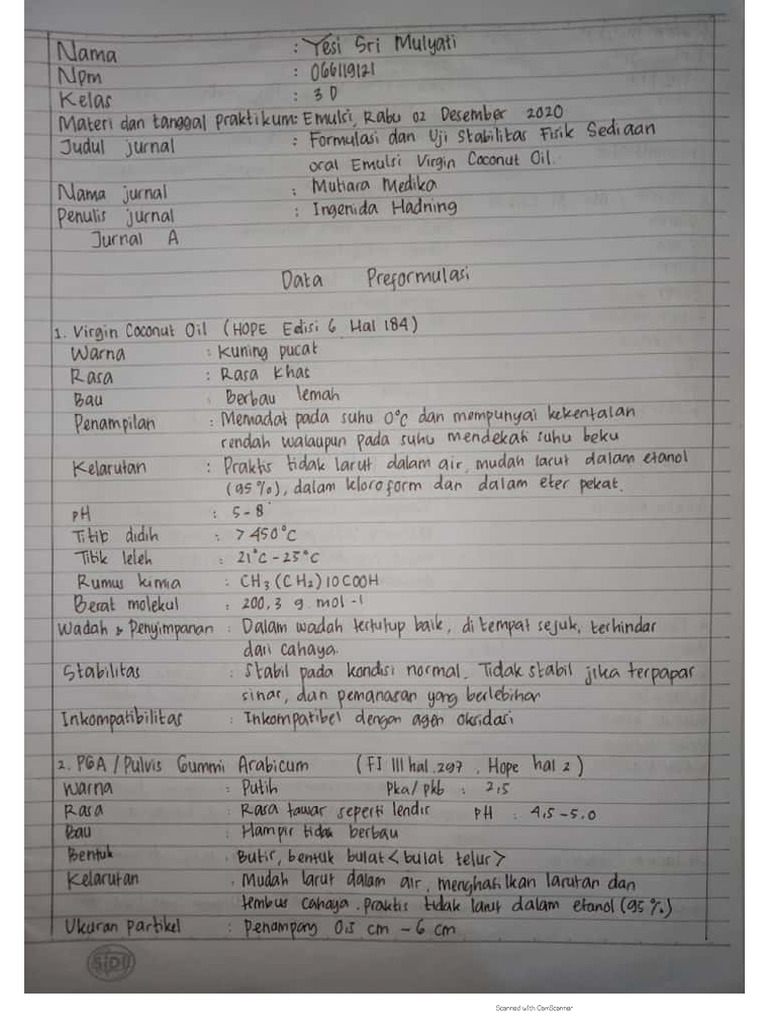 Nama : Yesi Sri Mulyati
Npm : 066119121
Kelas : 3D
Materi dan tanggal praktikum: Emulsi, Rabu 02 Desember 2020
Judul jurnal : Formulasi dan Uji Stabilitas Fisik Sediaan
oral Emulsi Virgin Coconut Oil.
Nama jurnal : Mutiara Medika
Penulis jurnal : Ingenida Hadning
Jurnal A
Data Preformulasi
1. Virgin Coconut Oil (HOPE Edisi 6 Hal 184)
Warna : Kuning pucat
Rasa : Rasa khas
Bau : Berbau lemah
Penampilan : Memadat pada suhu 0°C dan mempunyai kekentalan
rendah walaupun pada suhu mendekati suhu beku
Kelarutan : Praktis tidak larut dalam air, mudah larut dalam etanol
(95%), dalam kloroform dan dalam eter pekat.
pH : 5-8
Titib didih : > 450°C
Titik leleh : 21°C - 25°C
Rumus kimia : CH3(CH2)10COOH
Berat molekul : 200,3 g mol-1
Wadah & Penyimpanan : Dalam wadah tertutup baik, di tempat sejuk, terhindar
dari cahaya.
Stabilitas : Stabil pada kondisi normal. Tidak stabil jika terpapar
sinar, dan pemanasan yang berlebihan
Inkompatibilitas : Inkompatibel dengan agen oksidasi
2. PGA / Pulvis Gummi Arabicum (FI III hal.297, Hope hal 2)
Warna : Putih Pka/pkb : 2,5
Rasa : Rasa tawar seperti lendir PH : 4,5-5.0
Bau : Hampir tidak berbau
Bentuk : Butir, bentuk bulat <bulat telur>
Kelarutan : Mudah larut dalam air, menghasilkan larutan dan
tembus cahaya. praktis tidak larut dalam etanol (95%)
Ukuran partikel : Penampang 0,5 cm - 6 cm
SiDU
Scanned with CamScanner